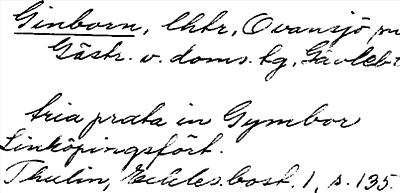 Ginborn, lhtr, Ovansjö sn
Gästr. v. doms. tg, Gävleb. l
tria prata in Gymbor
Linköpingsfört.
Thulin, Eckles. bost. 1, s. 135.